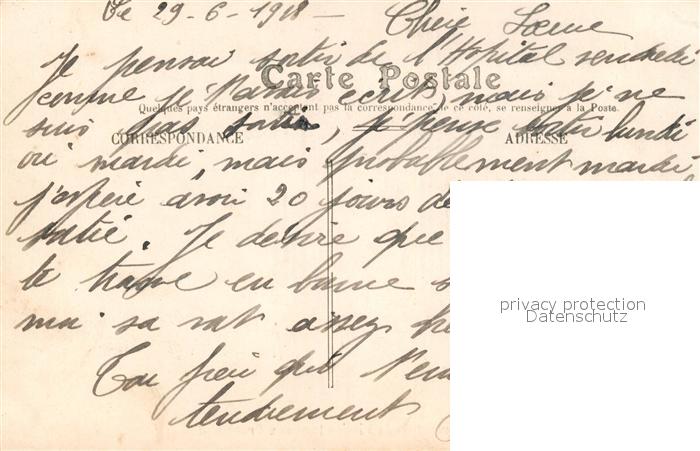 Le 29-6-1918 – Chère Sœur
Je pensai sortir de l'Hopital vendredi
Carte Postale
comme je mais je ne
Quelques pays étrangers n'acceptent pas la correspondance de ce côté, se renseigner à la Poste.
suis pas sortis, je pense lundi
CORRESPONDANCE ADRESSE
ou mardi, mais probablement mardi
j'espère avoir 20 jours de
Je désire que
te trouve en bonne s
privacy protection
Datenschutz
moi sa vat assez
Ton frère qui t'em
tendrement